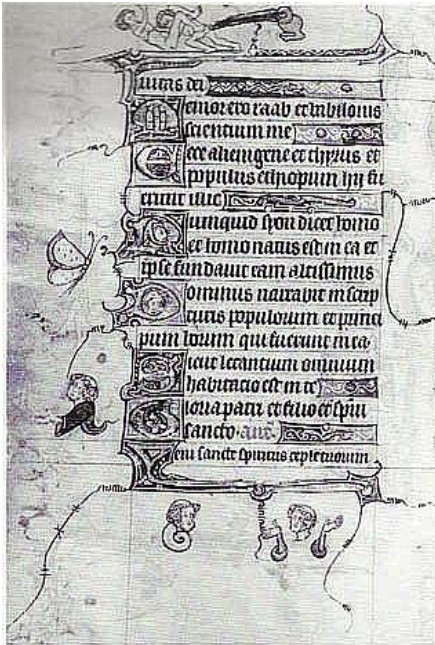 ivitas dei
Memor ero raab et babilonis
scientium me
Ecce alienigene et thyrus et
populus ethiopum hii fu
erunt illic
Numquid syon dicet homo
et homo natus est in ea et
ipse fundavit eam altissimus
Dominus narrabit in scrip
turis populorum et princi
pum horum qui fuerunt in ea
Sicut letantium omnium
habitacio est in te
Gloria patri et filio et spui
sancto. ant.
Veni sancte spiritus reple tuorum